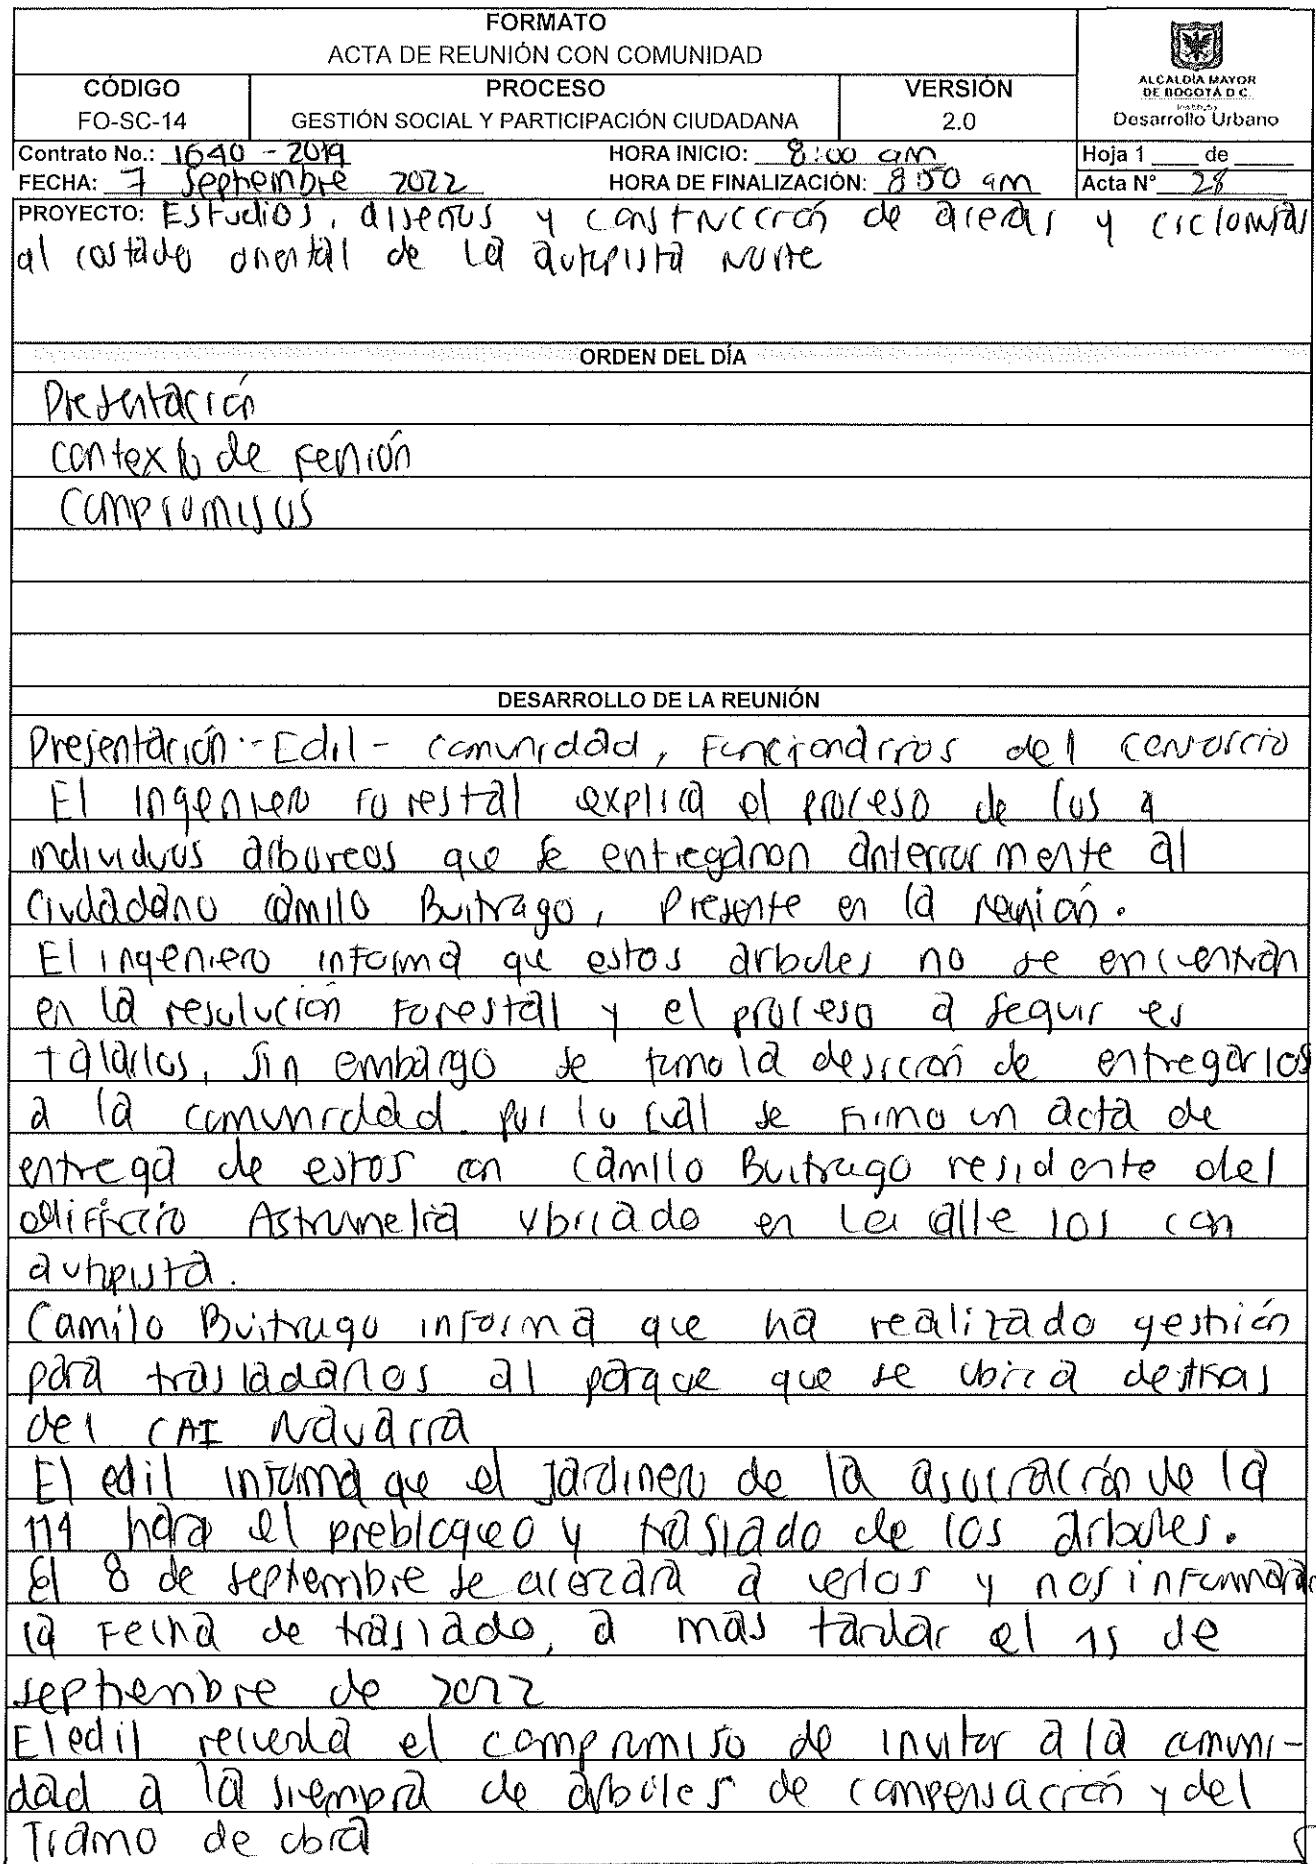 FORMATO
ACTA DE REUNIÓN CON COMUNIDAD
CÓDIGO
FO-SC-14
PROCESO
GESTIÓN SOCIAL Y PARTICIPACIÓN CIUDADANA
VERSIÓN
2.0
ALCALDÍA MAYOR
DE BOGOTÁ D.C.
Instituto
Desarrollo Urbano
Contrato No.: 1640 - 2019
HORA INICIO: 8:00 am
Hoja 1 ____ de ____
FECHA: 7 Septiembre 2022
HORA DE FINALIZACIÓN: 8:50 am
Acta N° 28
PROYECTO: Estudios, diseños y construcción de aceras y ciclorutas
al costado oriental de la autopista Norte
ORDEN DEL DÍA
Presentación
contexto de reunión
Compromisos
DESARROLLO DE LA REUNIÓN
Presentación - Edil - comunidad, Funcionarios del consorcio
El ingeniero forestal explica el proceso de los 4
individuos arboreos que se entregaron anteriormente al
ciudadano Camilo Buitrago, Presente en la reunión.
El ingeniero informa que estos arboles no se encuentran
en la resolución Forestal y el proceso a seguir es
talarlos, sin embargo se tomo la desicion de entregarlos
a la comunidad. por lo cual se firmo un acta de
entrega de estos con Camilo Buitrago residente del
edificio Astrumelia ubicado en la calle 101 con
autopista.
Camilo Buitrago informa que ha realizado gestión
para trasladarlos al parque que se ubica destras
del CAI Navarra
El edil informa que el Jardinero de la asociación de la
114 hara el prebloqueo y traslado de los arboles.
El 8 de septiembre se acercara a verlos y nos informara
la Fecha de traslado, a mas tardar el 15 de
septiembre de 2022
El edil recuerda el compromiso de invitar a la comuni-
dad a la siembra de árboles de compensación y del
Tramo de obra